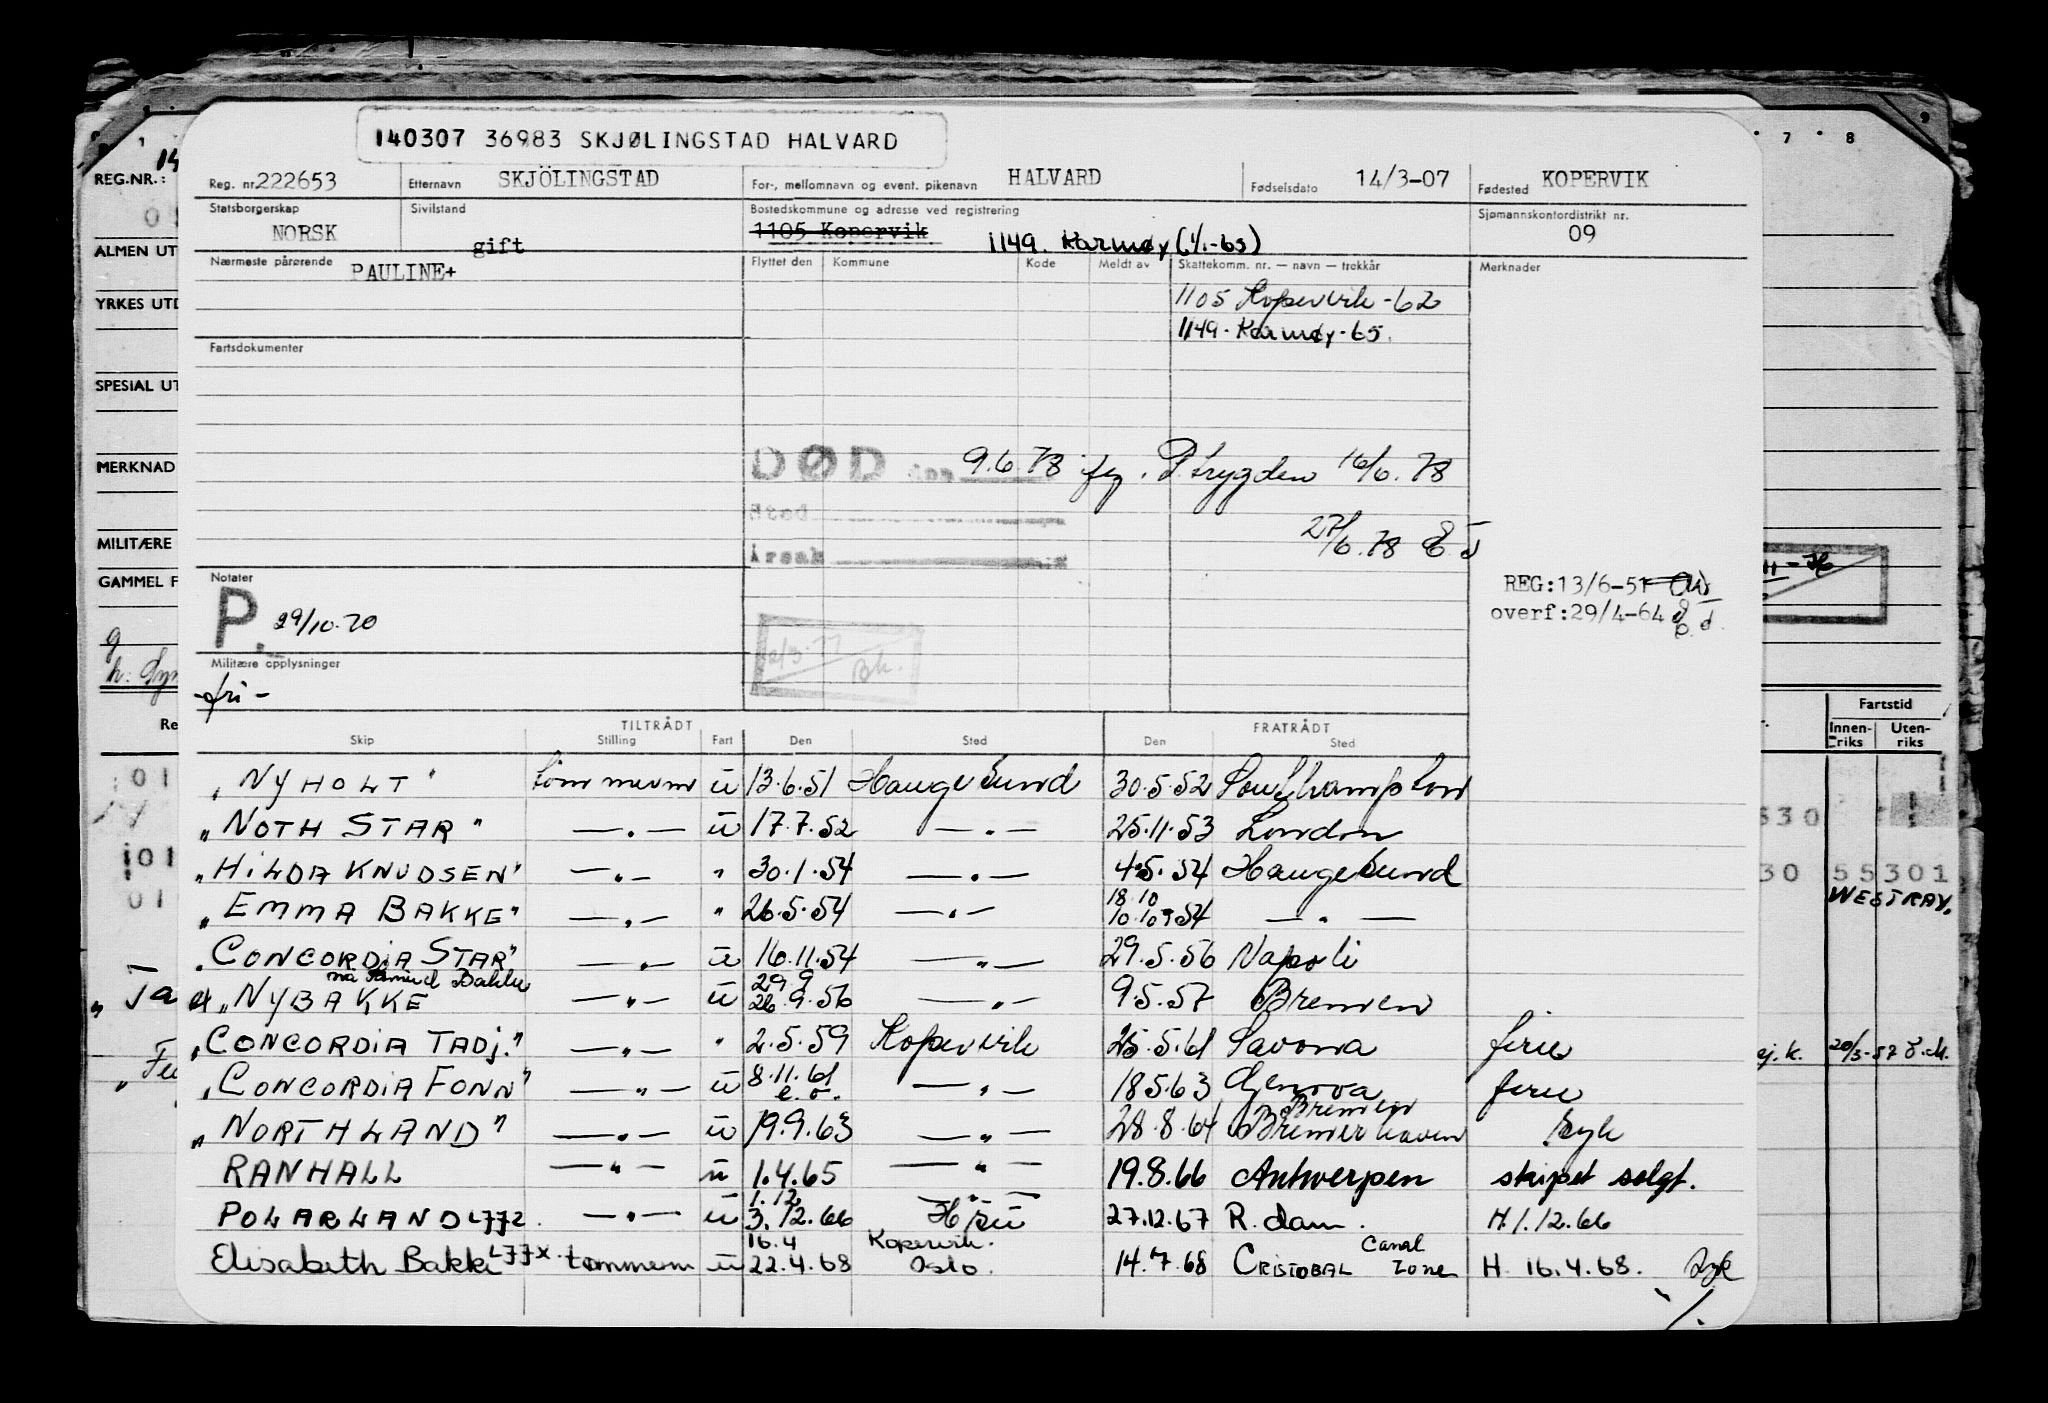 140307 36983 SKJØLINGSTAD HALVARD
Reg. nr. 222653 Etternavn SKJÖLINGSTAD For-, mellomnavn og event. pikenavn HALVARD Fødselsdato 14/3-07 Fødested KOPERVIK
Statsborgerskap NORSK Sivilstand gift Bostedskommune og adresse ved registrering 1105 Kopervik 1149. Karmøy (1/1-65) Sjømannskontordistrikt nr. 09
Nærmeste pårørende PAULINE+ Flyttet den Kommune Kode Meldt av Skattekomm. nr. — navn — trekkår Merknader
1105 Kopervik -62
1149 - Karmøy - 65.
Fartsdokumenter
DØD den 9.6.78 P.trygden 16/6.78
Sted
27/6.78
Årsak
Notater
P. 29/10.70
REG:13/6-51
overf:29/4-64
Militære opplysninger
-fri-
TILTRÅDT FRATRÅDT
Skip Stilling Fart Den Sted Den Sted
"NYHOLT" tömmerm ü 13.6.51 Haugesund 30.5.52 Southampton
"NOTH STAR" —"— ü 17.7.52 —"— 25.11.53 London
"HILDA KNUDSEN" —"— " 30.1.54 —"— 4.5.54 Haugesund
"EMMA BAKKE" —"— " 26.5.54 —"— 18.10 10.10.54 —"—
"CONCORDIA STAR" —"— ü 16.11.54 —"— 29.5.56 Napoli
nå Bakke
"NYBAKKE —"— ü 29.9 26.9.56 —"— 9.5.57 Bremen
"CONCORDIA TADJ." —"— " 2.5.59 Kopervik 25.5.61 Savona ferie
"CONCORDIA FONN" —"— ü 8.11.61 e.o. —"— 18.5.63 Genova ferie
"NORTHLAND" —"— ü 19.9.63 —"— 28.8.64 Bremen Bremerhaven syk
RANHALL —"— u 1.4.65 —"— 19.8.66 Antwerpen skipet solgt.
POLARLAND LJJZ. —"— ü 1.12 3.12.66 —"— 27.12.67 R.dam. H. 1.12.66
Elisabeth Bakke LJJX. tømmerm ü 16.4 22.4.68 Kopervik. Oslo. 14.7.68 CRISTOBAL Canal Zone H. 16.4.68. Syk
REG.NR.: 14
ALMEN UT
YRKES UTD
SPESIAL UT
MERKNAD
MILITÆRE
GAMMEL F
Re
01
01
01
7 8
Fartstid
Innen-riks Uten-riks
630
30 55301
WESTRAY.
20/3-57